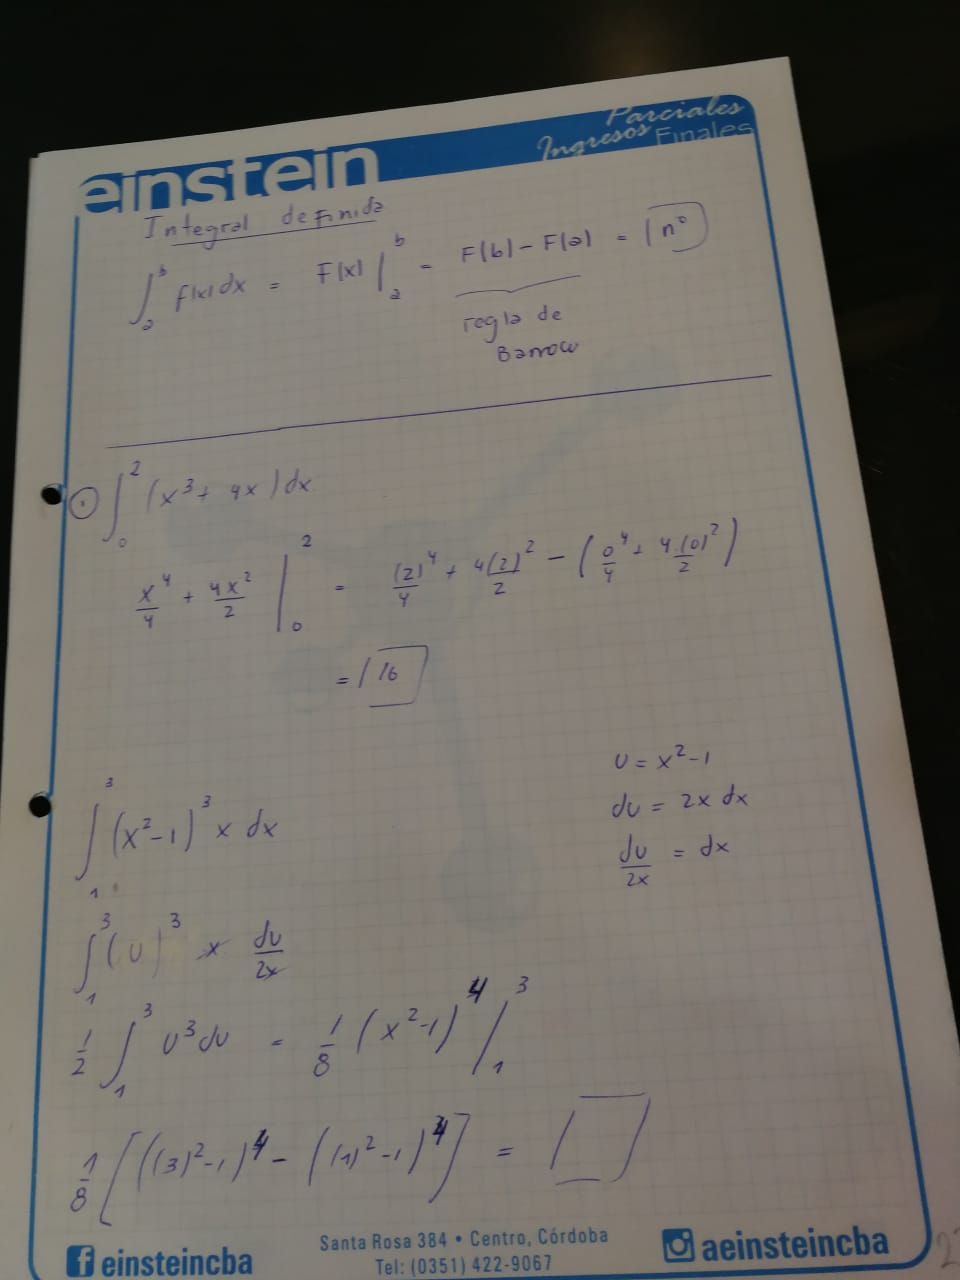 Parciales
Ingresos Finales
einstein
Integral definida
∫₂ᵇ F(x) dx = F(x) |₂ᵇ = F(b) - F(a) = [nº]
regla de
Barrow
① ∫₀² (x³ + 4x) dx
x⁴/4 + 4x²/2 |₀² = (2)⁴/4 + 4(2)²/2 - (0⁴/4 + 4.(0)²/2)
= [16]
u = x²-1
du = 2x dx
du/2x = dx
∫₁³ (x²-1)³ x dx
∫₁³ (u)³ x du/2x
1/2 ∫₁³ u³ du = 1/8 (x²-1)⁴ |₁³
1/8 [((3)²-1)⁴ - ((1)²-1)⁴] = [ ]
einsteincba
Santa Rosa 384 • Centro, Córdoba
Tel: (0351) 422-9067
aeinsteincba